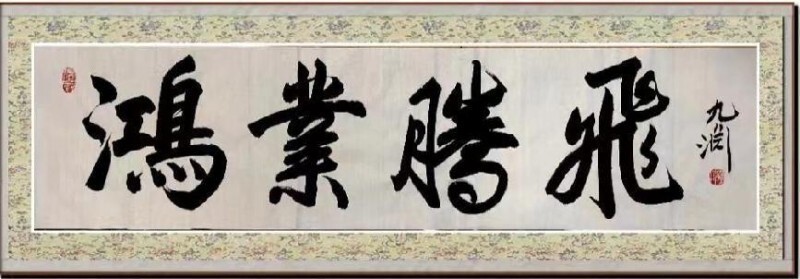 鴻業騰飛
九渊